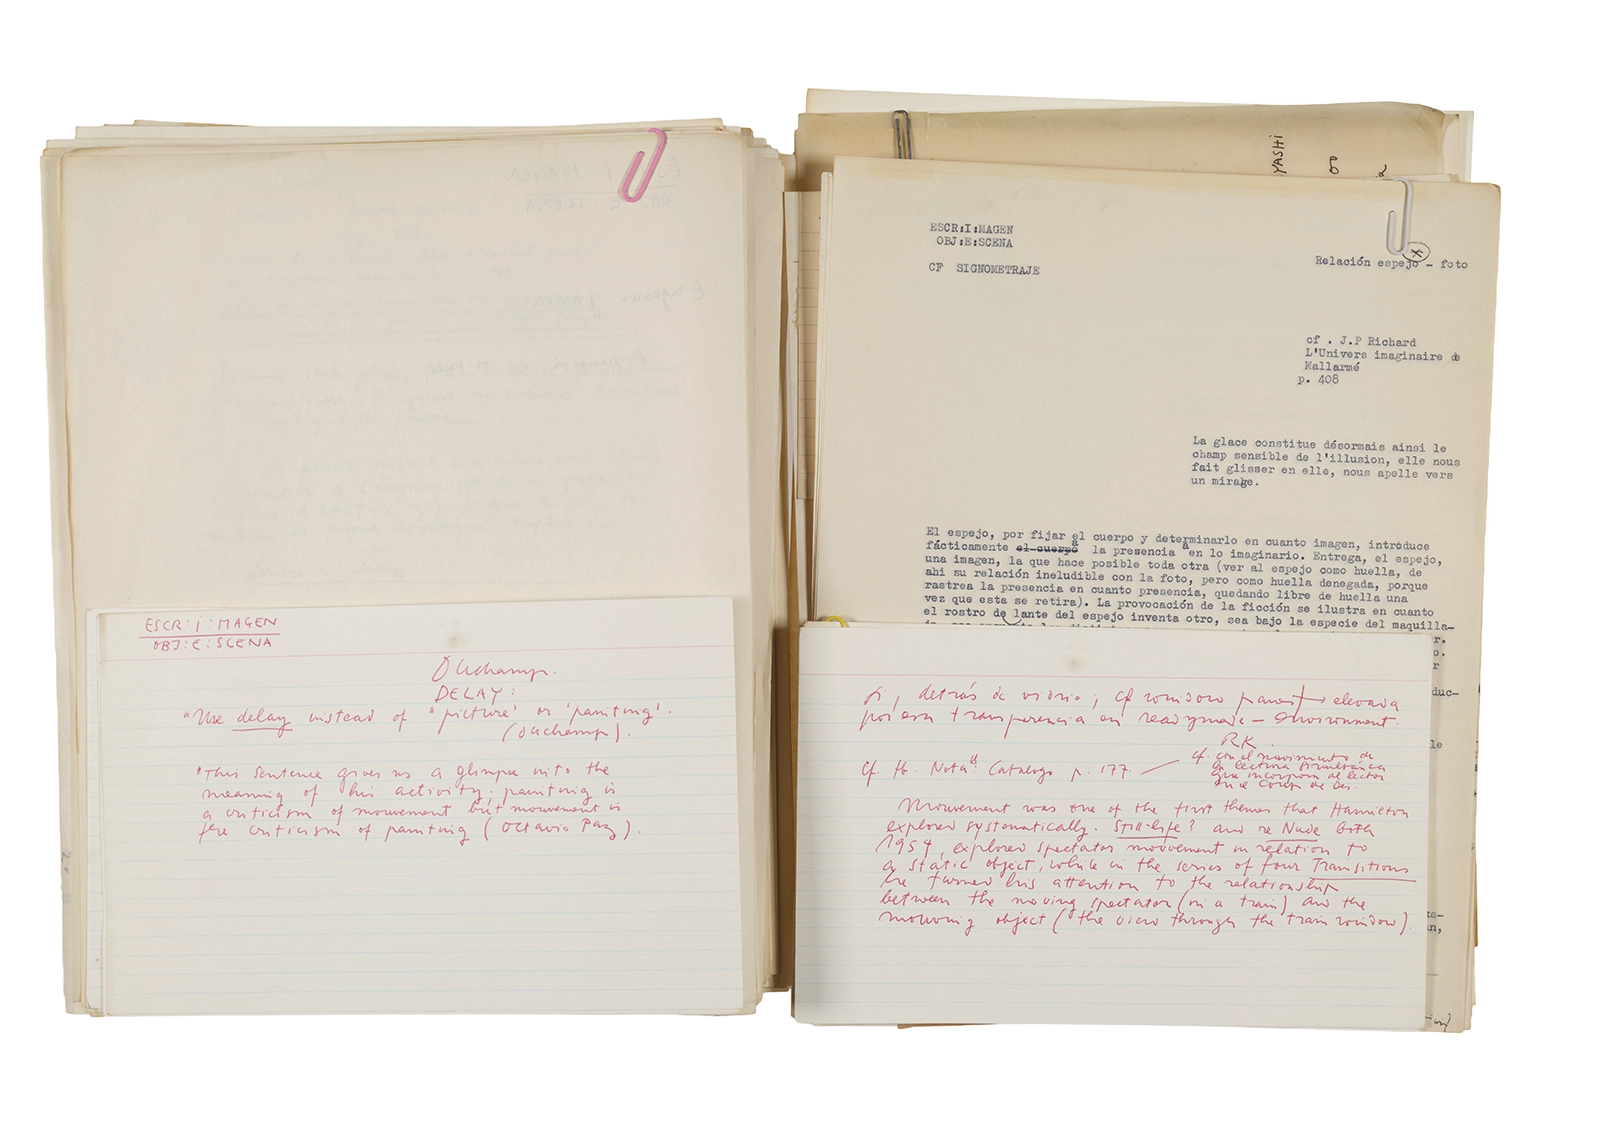 ESCR:I:MAGEN
OBJ:E:SCENA
Duchamp.
DELAY:
"Use delay instead of "picture' or 'painting'.
(Duchamp).
"This sentence gives us a glimpse into the
meaning of his activity: painting is
a criticism of movement but movement is
the criticism of painting (Octavio Paz).
YASHI
8
ESCR:I:MAGEN
OBJ:E:SCENA
CF SIGNOMETRAJE
Relación espejo - foto
cf . J.P Richard
L'Univers imaginaire de
Mallarmé
p. 408
La glace constitue désormais ainsi le
champ sensible de l'illusion, elle nous
fait glisser en elle, nous apelle vers
un mirage.
El espejo, por fijar el cuerpo y determinarlo en cuanto imagen, introduce
fácticamente el cuerpo a la presencia en lo imaginario. Entrega, el espejo,
una imagen, la que hace posible toda otra (ver al espejo como huella, de
ahi su relación ineludible con la foto, pero como huella denegada, porque
rastrea la presencia en cuanto presencia, quedando libre de huella una
vez que esta se retira). La provocación de la ficción se ilustra en cuanto
el rostro de lante del espejo inventa otro, sea bajo la especie del maquilla-
r.
o.
r
duc-
le
n,
detrás de vidrio; cf window elevada
por esa transparencia en readymade - environment.
RK
cf. con el movimiento de
la lectura simultánea
que incorpora al lector
en el
Cf. Nota Catálogo p. 177.
Movement was one of the first themes that Hamilton
explored systematically. Still-life? and re Nude both
1954, explored spectator movement in relation to
a static object, while in the series of four Transitions
he turned his attention to the relationship
between the moving spectator (in a train) and the
moving object (the view through the train window).